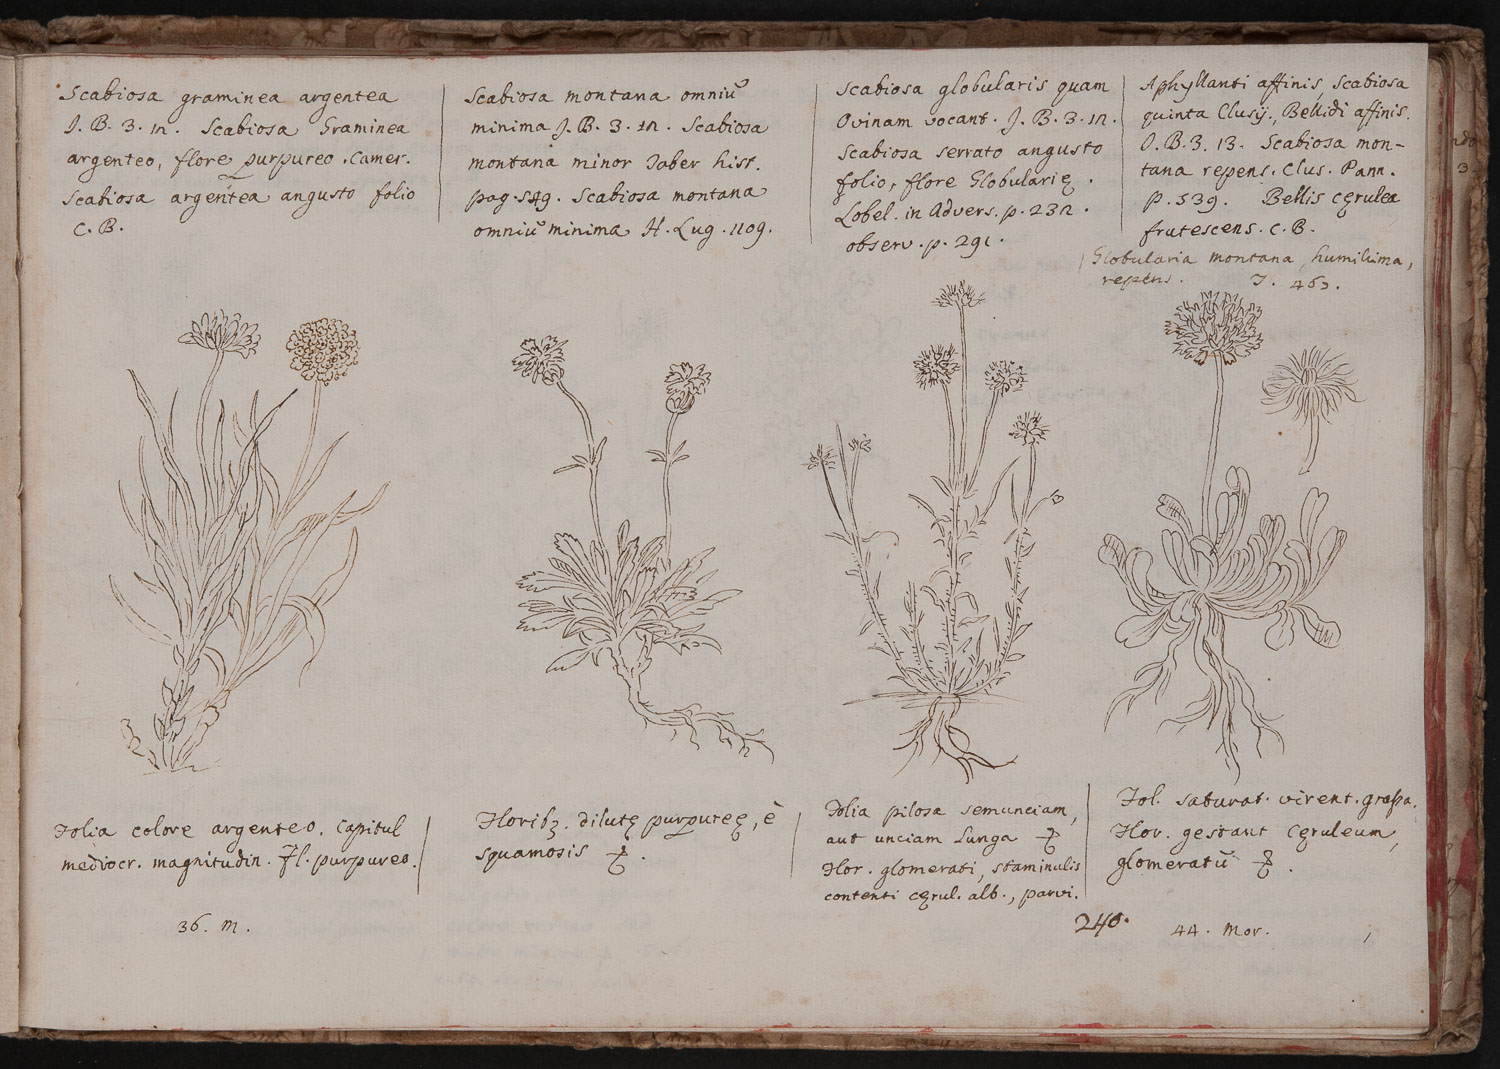 Scabiosa graminea argentea
J. B. 3. 12. Scabiosa Graminea
argenteo, flore purpureo. Camer.
Scabiosa argentea angusto folio
C. B.
Scabiosa montana omniū
minima J. B. 3. 12. Scabiosa
montana minor Taber hist.
pag. 549. Scabiosa montana
omniū minima H. Lug. 1109.
Scabiosa globularis quam
Ovinam vocant. J. B. 3. 12.
Scabiosa serrato angusto
folio, flore Globularię.
Lobel. in Advers. p. 232.
observ. p. 291.
Aphyllanti affinis, Scabiosa
quinta Clusij., Bellidi affinis.
J. B. 3. 13. Scabiosa mon-
tana repens. Clus. Pann.
p. 539. Bellis cęrulea
frutescens. C. B.
Globularia montana, humilima,
repens. T. 467.
Folia colore argenteo. Capitul
mediocr. magnitudin. Fl. purpureo.
Florib9. dilutę purpureę, è
squamosis
Folia pilosa semunciam,
aut unciam Lunga
Flor. glomerati, staminulis
contenti cęrul. alb., parvi.
Fol. saturat. virent. graßa.
Flor. gestant cęruleum,
glomeratū
36. M.
240.
44. Mor.